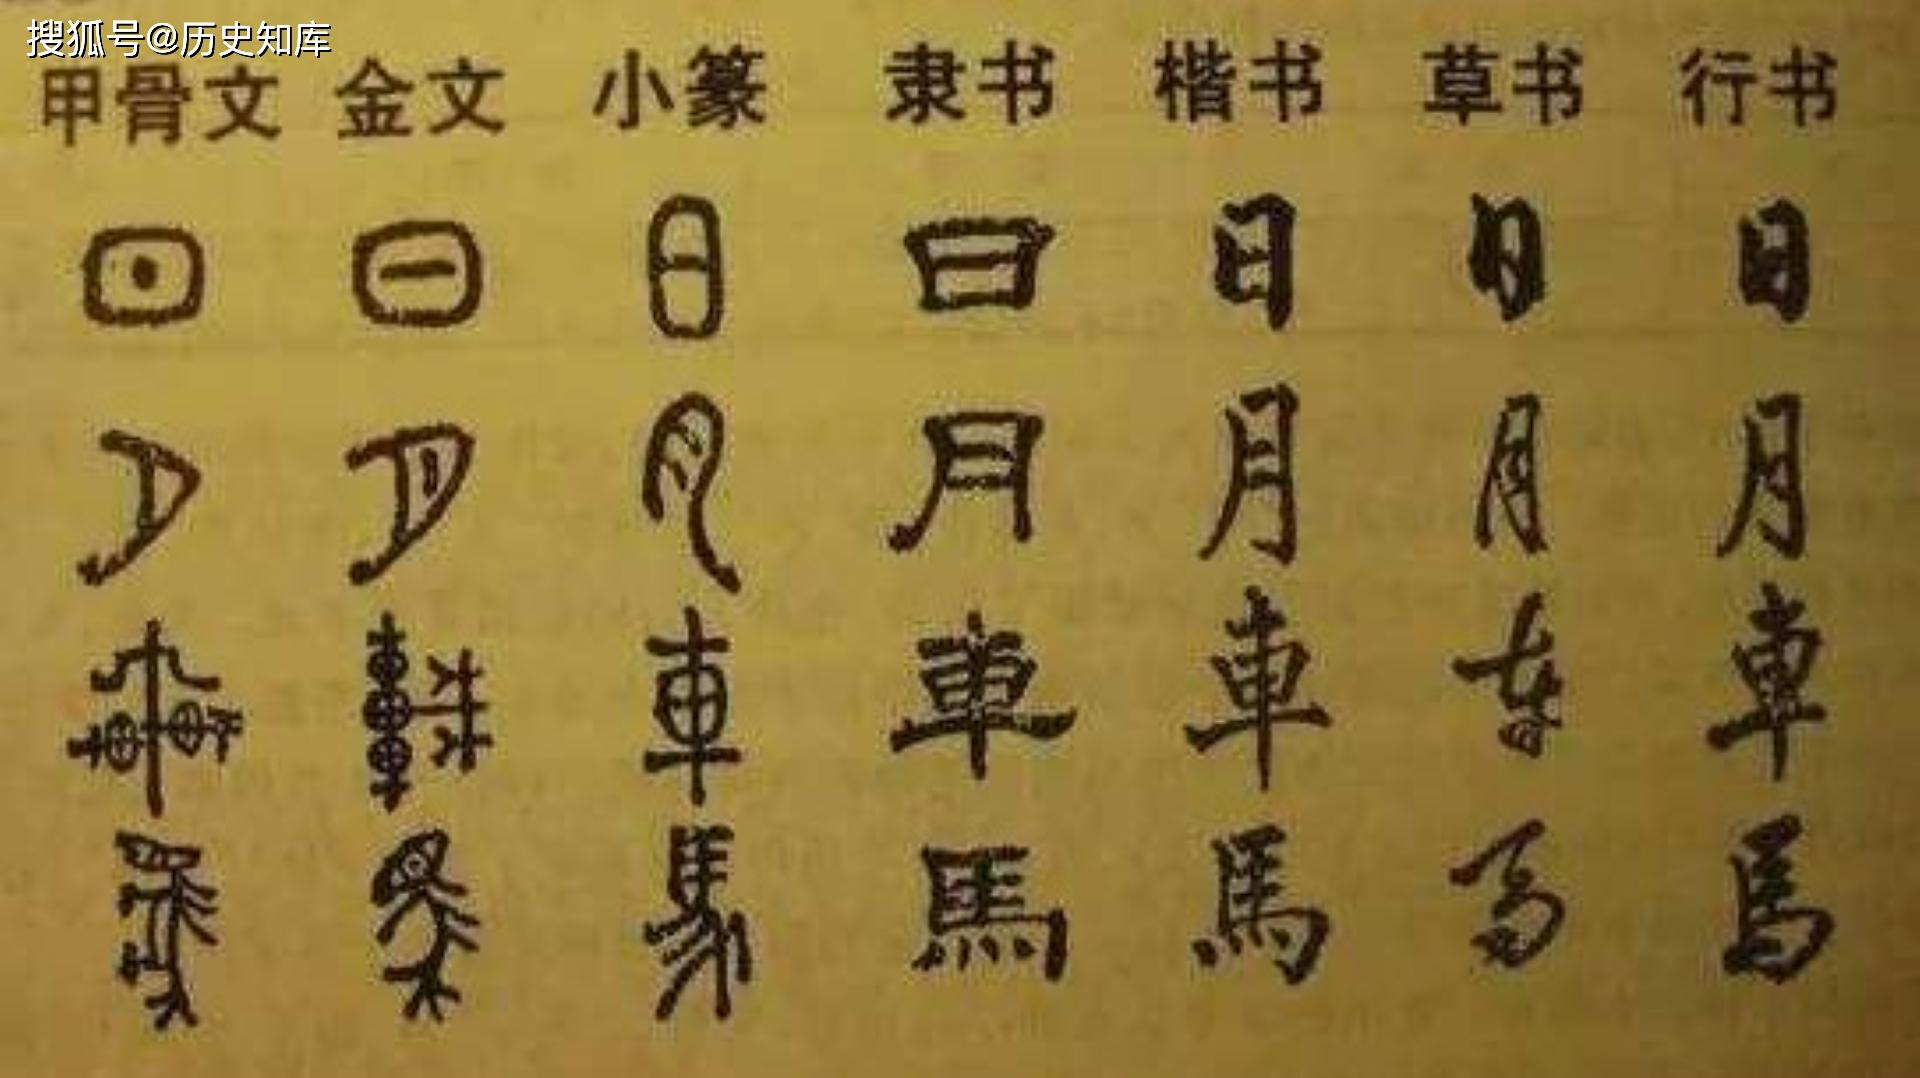 搜狐号@历史知库
甲骨文 金文 小篆 隶书 楷书 草书 行书
日 日 日 日 日 日 日
月 月 月 月 月 月 月
車 車 車 車 車 車 車
馬 馬 馬 馬 馬 馬 馬